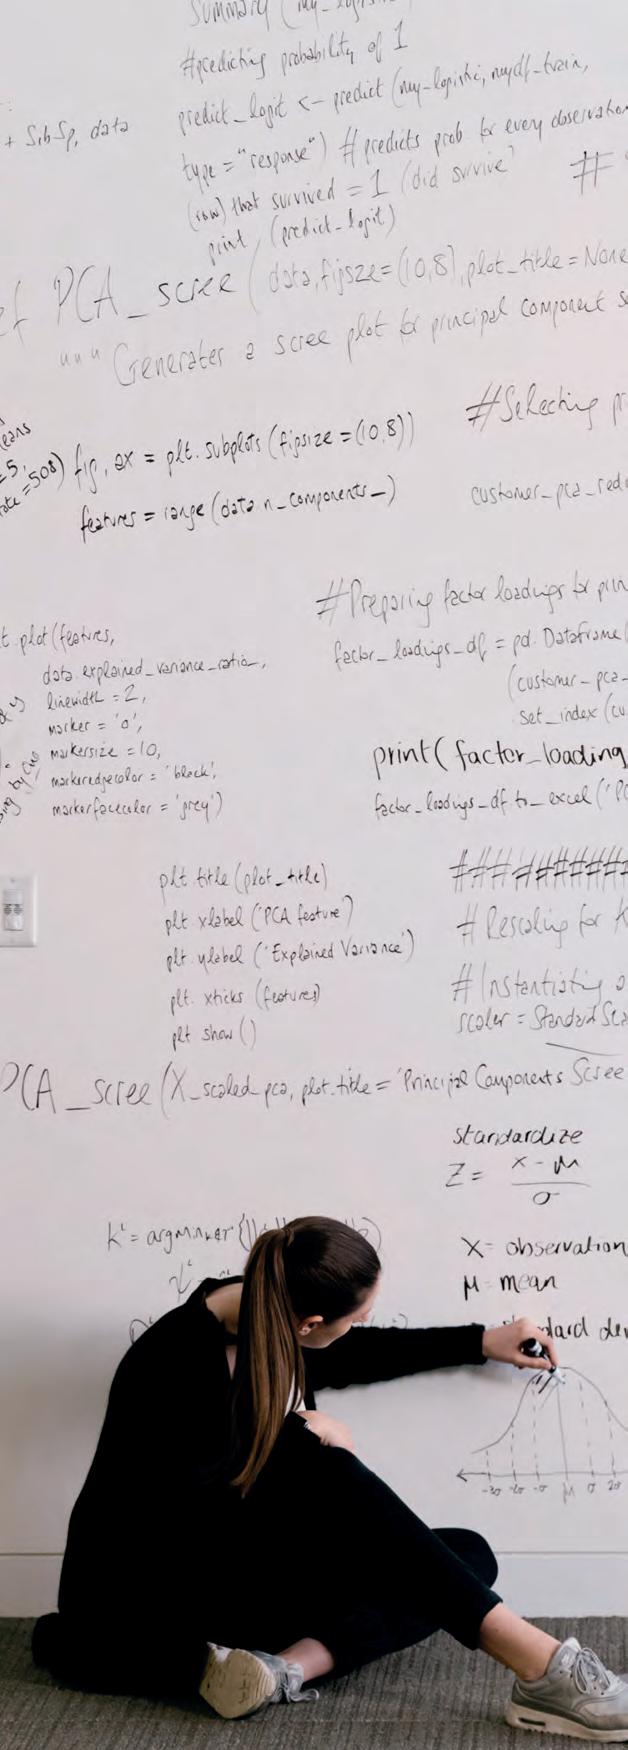 Summary (my_logistic
#predicting probability of 1
predict_logit <- predict (my-logistic, mydf-train,
+ SibSp, data
type = "response") # predicts prob for every observation
(row) that survived = 1 (did survive
#
print (predict-logit)
ef PCA_scree (data, figsize=(10,8), plot_title = None
""" Generates a scree plot for principal component
#Selecting pr
eans
=5,
ate = 508)
fig, ax = plt.subplots (figsize = (10,8))
features = range (data.n_components_)
customer_pca_red
#Preparing factor loadings for prin
factor_loadings_df = pd. Dataframe(
(customer_pca_
set_index (cu
t.plot (features,
data.explained_variance_ratio_,
linewidth = 2,
marker = 'o',
markersize = 10,
markeredgecolor = 'black',
markerfacecolor = 'grey')
print( factor_loading
factor_loadings_df to_excel ('PC
plt.title (plot_title)
plt. xlabel ('PCA feature')
plt. ylabel ('Explained Variance')
plt. xticks (features)
plt show ()
###########
# Rescaling for K
# Instantiating a
scaler = StandardSca
PCA_scree (X_scaled_pca, plot_title = 'Principal Components Scree
standardize
Z = x - μ
σ
X = observation
μ mean
dard dev
-3σ -2σ -σ μ σ 2σ